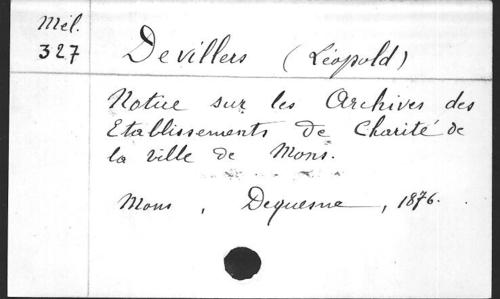 Mél.
327
Devillers (Léopold)
Notice sur les Archives des
Etablissements de Charité de
la ville de Mons.
Mons, Dequesne, 1876.